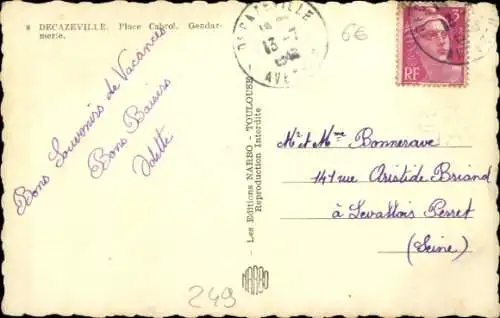 8 DECAZEVILLE. Place Cabrol. Gendar-
merie.
DECAZEVILLE
13-7
AVE
6€
RF
Bons Souvenirs de Vacances
Bons Baisers
Odette
- Les Editions NARBO - TOULOUSE
Reproduction Interdite
NARBO
Mr et Mme Bonnerave
141 rue Aristide Briand
à Levallois Perret
(Seine)
249